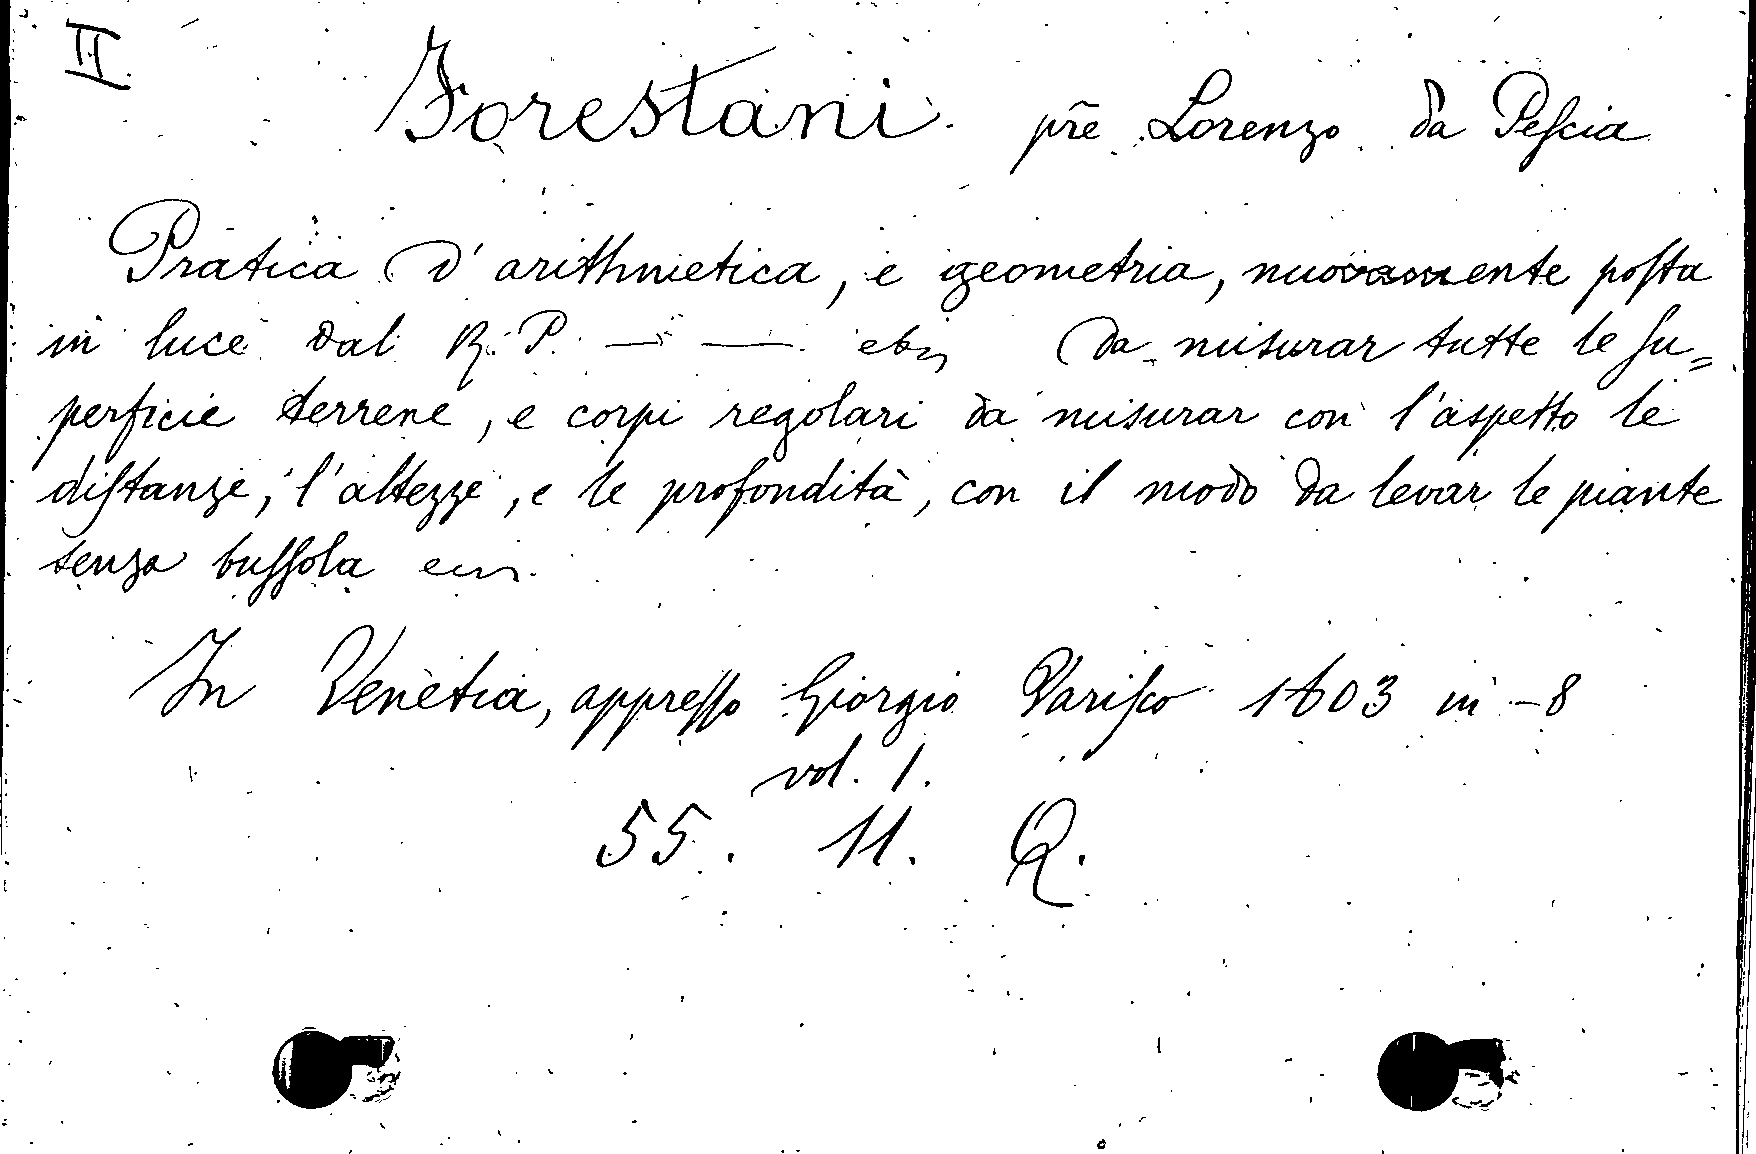 II
Forestani. prẽ Lorenzo da Peſcia
Pratica d'arithmetica, e geometria, nuovamente poſta
in luce dal R. P. — — da misurar tutte le ſu=
perficie terrene, e corpi regolari da misurar con l'aspetto le
diſtanze, l'altezze, e le profondità, con il modo da levar le piante
senza buſſola
In Venetia, appreſſo Giorgio Variſco 1603 in-8
vol. 1.
55. 11. Q.